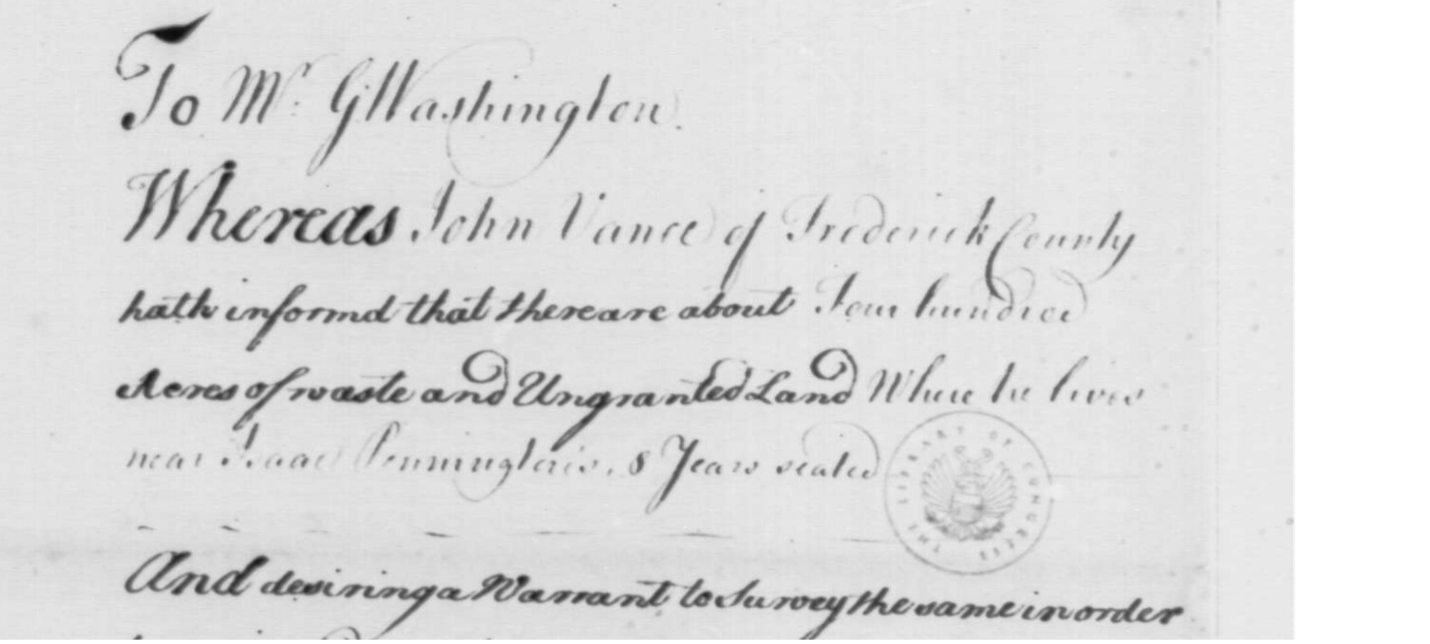 To Mr. GWashington.
Whereas John Vance of Frederick County
hath informd that there are about Four hundred
Acres of waste and Ungranted Land Where he lives
near Isaac Penningtons. 8 Years seated
THE LIBRARY OF CONGRESS
And desiring a Warrant to Survey the same in order